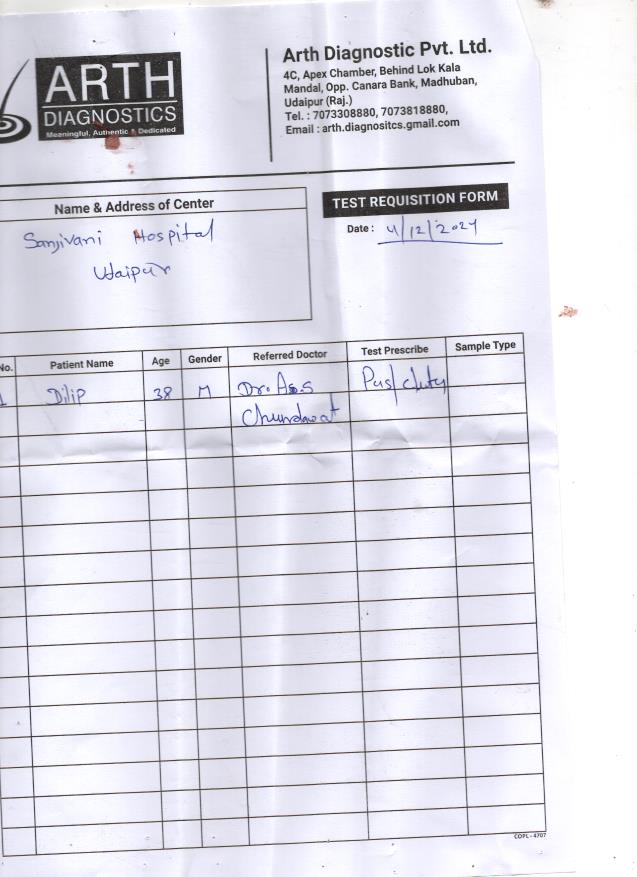 ARTH
DIAGNOSTICS
Meaningful, Authentic & Dedicated
Arth Diagnostic Pvt. Ltd.
4C, Apex Chamber, Behind Lok Kala
Mandal, Opp. Canara Bank, Madhuban,
Udaipur (Raj.)
Tel. : 7073308880, 7073818880,
Email : arth.diagnositcs.gmail.com
Name & Address of Center
Sanjivani Hospital
Udaipur
TEST REQUISITION FORM
Date : 4/12/2024
No. Patient Name Age Gender Referred Doctor Test Prescribe Sample Type
1 Dilip 38 M Dr. A.S.S Pus/
Chundawat
COPL - 4707